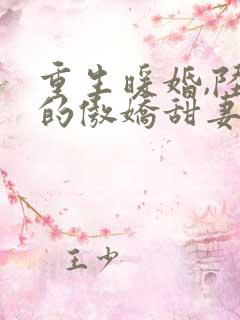 重生暖婚,陆
的傲娇甜妻
王少